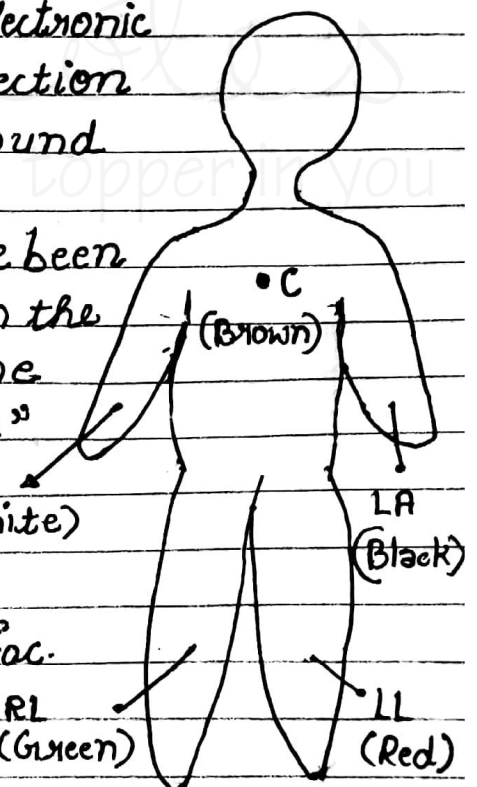 lectronic
ection
ound
topper in you
e been
n the
C
(Brown)
e
"
ite)
LA
(Black)
ac.
RL
(Green)
LL
(Red)